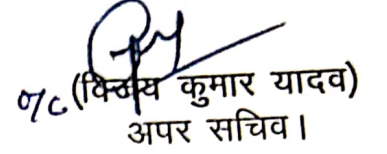 o/c (विजय कुमार यादव)
अपर सचिव।